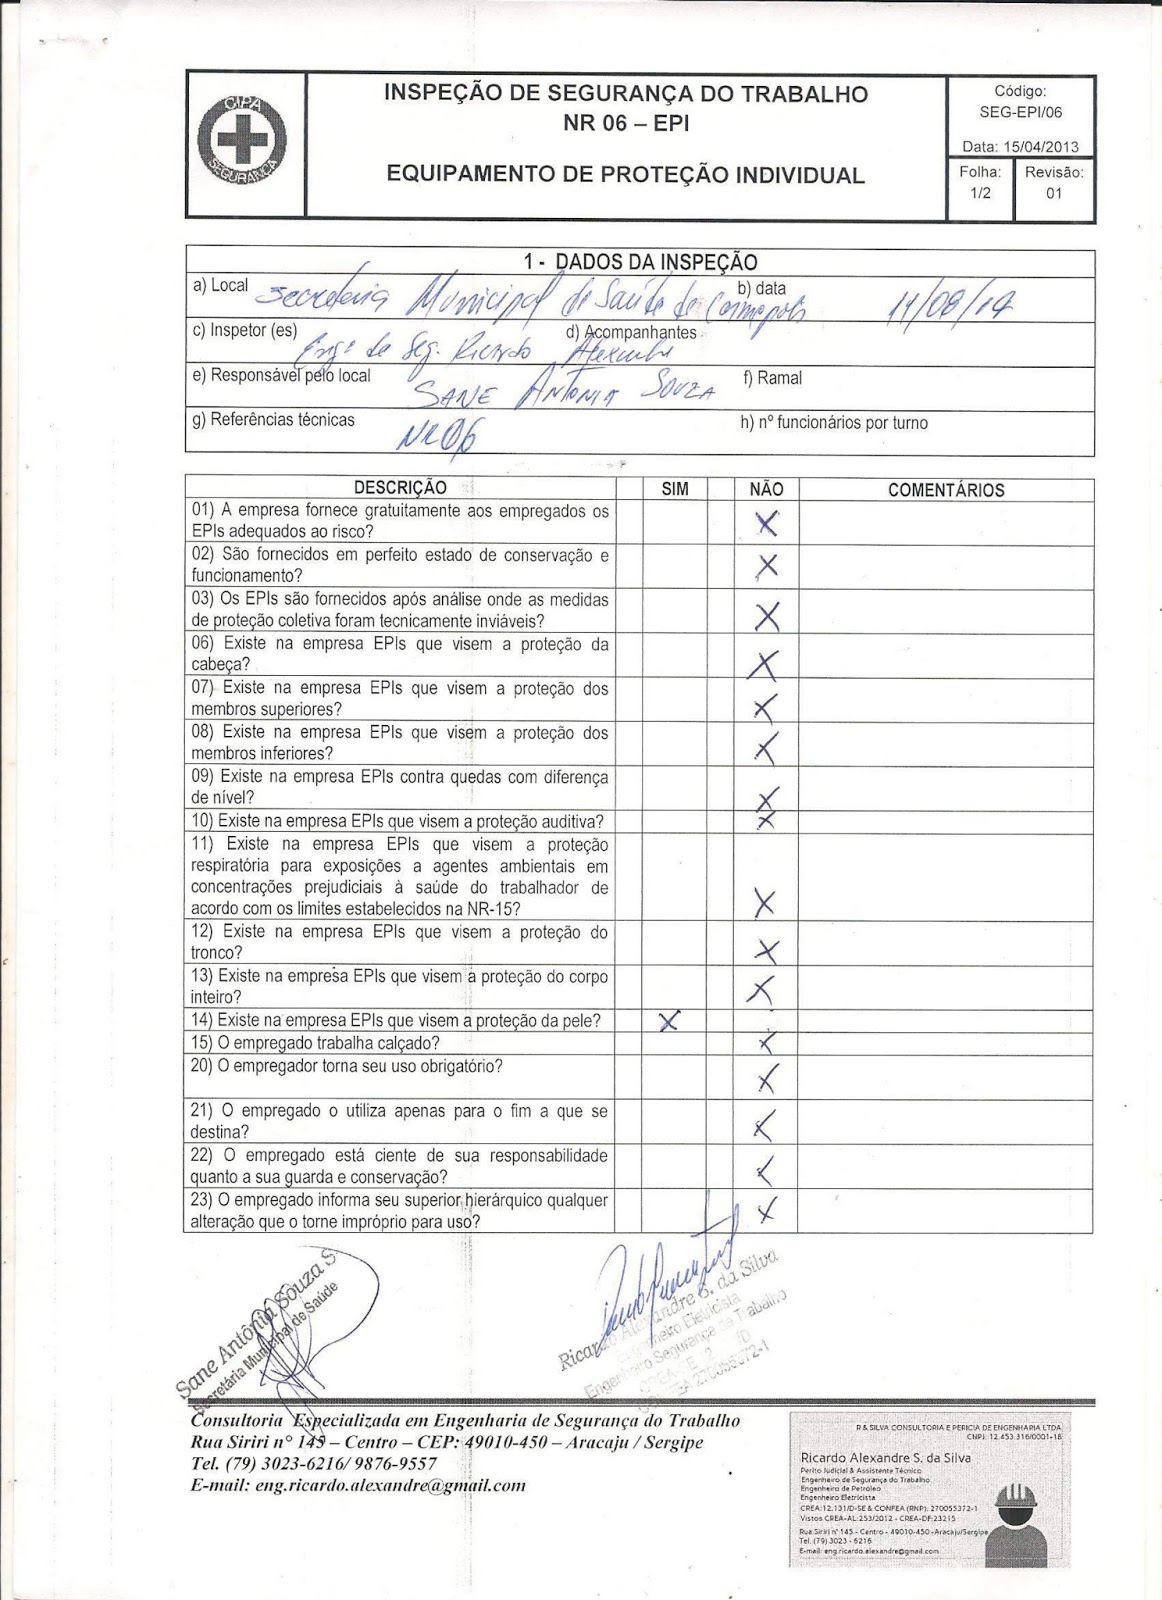 CIPA
SEGURANÇA
INSPEÇÃO DE SEGURANÇA DO TRABALHO
NR 06 – EPI
EQUIPAMENTO DE PROTEÇÃO INDIVIDUAL
Código:
SEG-EPI/06
Data: 15/04/2013
Folha:
1/2
Revisão:
01
1 - DADOS DA INSPEÇÃO
a) Local Secretaria Municipal de Saúde de b) data 11/08/14
c) Inspetor (es) Engº de Seg. Ricardo Alexandre d) Acompanhantes
e) Responsável pelo local SANE ANTONIA SOUZA f) Ramal
g) Referências técnicas NR06 h) nº funcionários por turno
DESCRIÇÃO SIM NÃO COMENTÁRIOS
01) A empresa fornece gratuitamente aos empregados os
EPIs adequados ao risco? X
02) São fornecidos em perfeito estado de conservação e
funcionamento? X
03) Os EPIs são fornecidos após análise onde as medidas
de proteção coletiva foram tecnicamente inviáveis? X
06) Existe na empresa EPIs que visem a proteção da
cabeça? X
07) Existe na empresa EPIs que visem a proteção dos
membros superiores? X
08) Existe na empresa EPIs que visem a proteção dos
membros inferiores? X
09) Existe na empresa EPIs contra quedas com diferença
de nível? X
10) Existe na empresa EPIs que visem a proteção auditiva? X
11) Existe na empresa EPIs que visem a proteção
respiratória para exposições a agentes ambientais em
concentrações prejudiciais à saúde do trabalhador de
acordo com os limites estabelecidos na NR-15? X
12) Existe na empresa EPIs que visem a proteção do
tronco? X
13) Existe na empresa EPIs que visem a proteção do corpo
inteiro? X
14) Existe na empresa EPIs que visem a proteção da pele? X
15) O empregado trabalha calçado? X
20) O empregador torna seu uso obrigatório? X
21) O empregado o utiliza apenas para o fim a que se
destina? X
22) O empregado está ciente de sua responsabilidade
quanto a sua guarda e conservação? X
23) O empregado informa seu superior hierárquico qualquer
alteração que o torne impróprio para uso? X
Sane Antônia Souza S
Secretária Municipal de Saúde
Ricardo Alexandre S. da Silva
Engenheiro Eletricista
Engenheiro Segurança de Trabalho
270055372-1
Consultoria Especializada em Engenharia de Segurança do Trabalho
Rua Siriri n° 145 – Centro – CEP: 49010-450 – Aracaju / Sergipe
Tel. (79) 3023-6216/ 9876-9557
E-mail: eng.ricardo.alexandre@gmail.com
R & SILVA CONSULTORIA E PERICIA DE ENGENHARIA LTDA
CNPJ: 12.453.316/0001-18
Ricardo Alexandre S. da Silva
Perito Judicial & Assistente Técnico
Engenheiro de Segurança do Trabalho
Engenheiro de Petróleo
Engenheiro Eletricista
CREA:12.131/D-SE & CONFEA (RNP): 270055372-1
Vistos CREA-AL:253/2012 - CREA-DF:23215
Rua Siriri n° 145 - Centro - 49010-450 -Aracaju/Sergipe
Tel. (79) 3023 - 6216
E-mail: eng.ricardo.alexandre@gmail.com